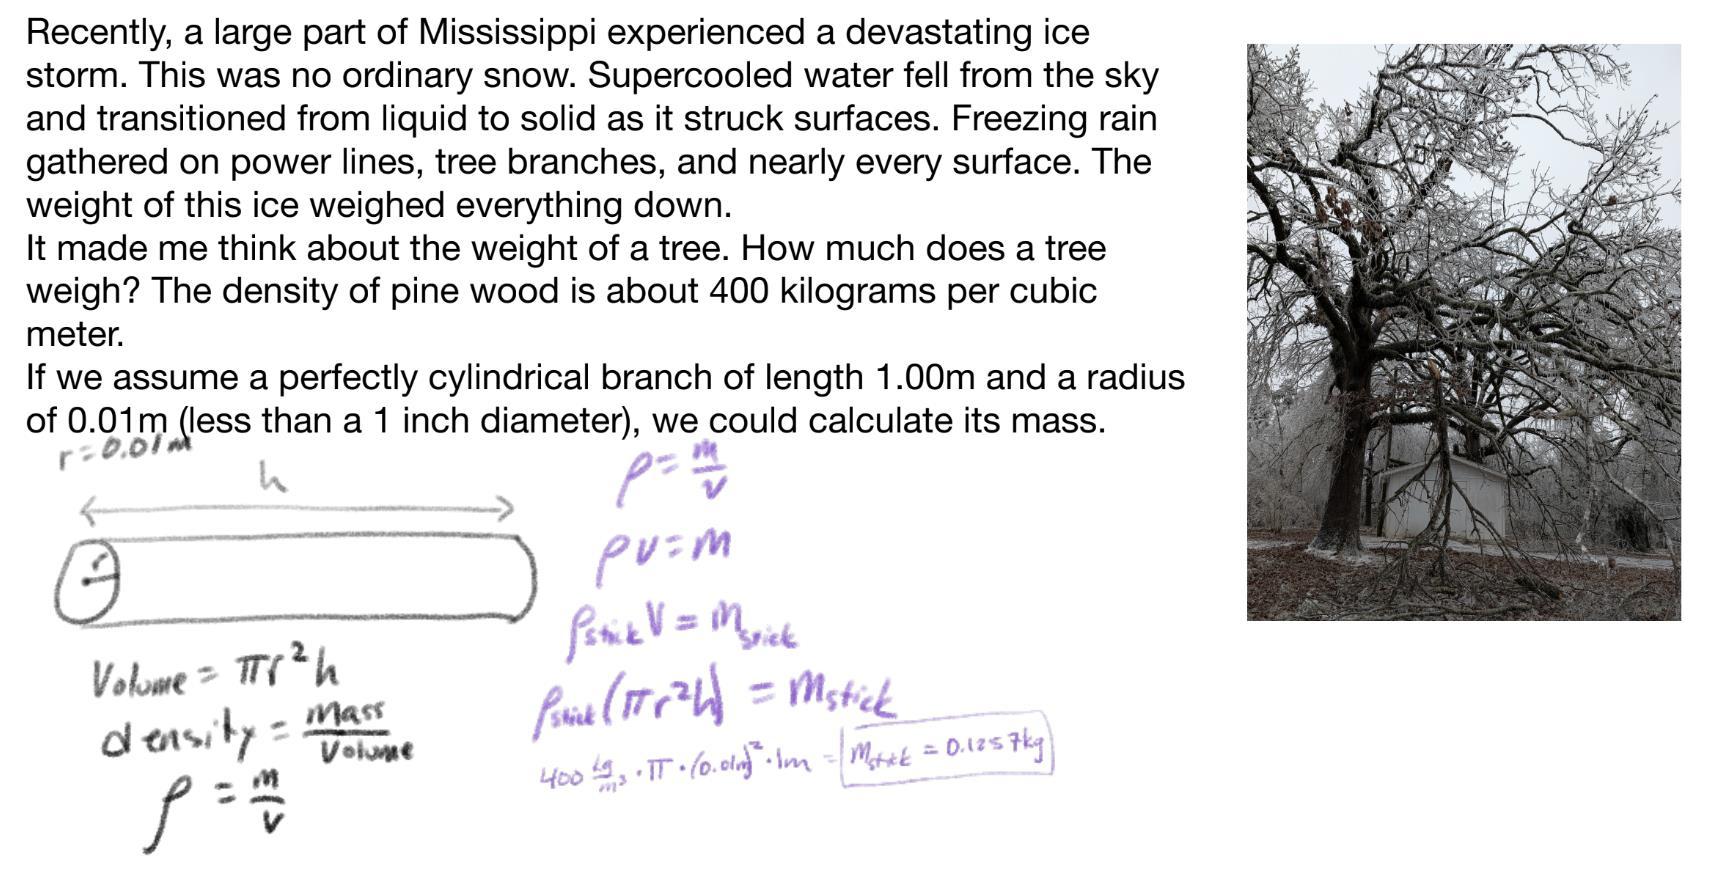 Recently, a large part of Mississippi experienced a devastating ice
storm. This was no ordinary snow. Supercooled water fell from the sky
and transitioned from liquid to solid as it struck surfaces. Freezing rain
gathered on power lines, tree branches, and nearly every surface. The
weight of this ice weighed everything down.
It made me think about the weight of a tree. How much does a tree
weigh? The density of pine wood is about 400 kilograms per cubic
meter.
If we assume a perfectly cylindrical branch of length 1.00m and a radius
of 0.01m (less than a 1 inch diameter), we could calculate its mass.
r=0.01m
h
r
Volume = πr²h
density = mass/Volume
ρ = m/v
ρ = m/v
ρv = m
ρstick V = mstick
ρstick (πr²h) = mstick
400 kg/m³ · π · (0.01m)² · 1m = mstick = 0.1257kg